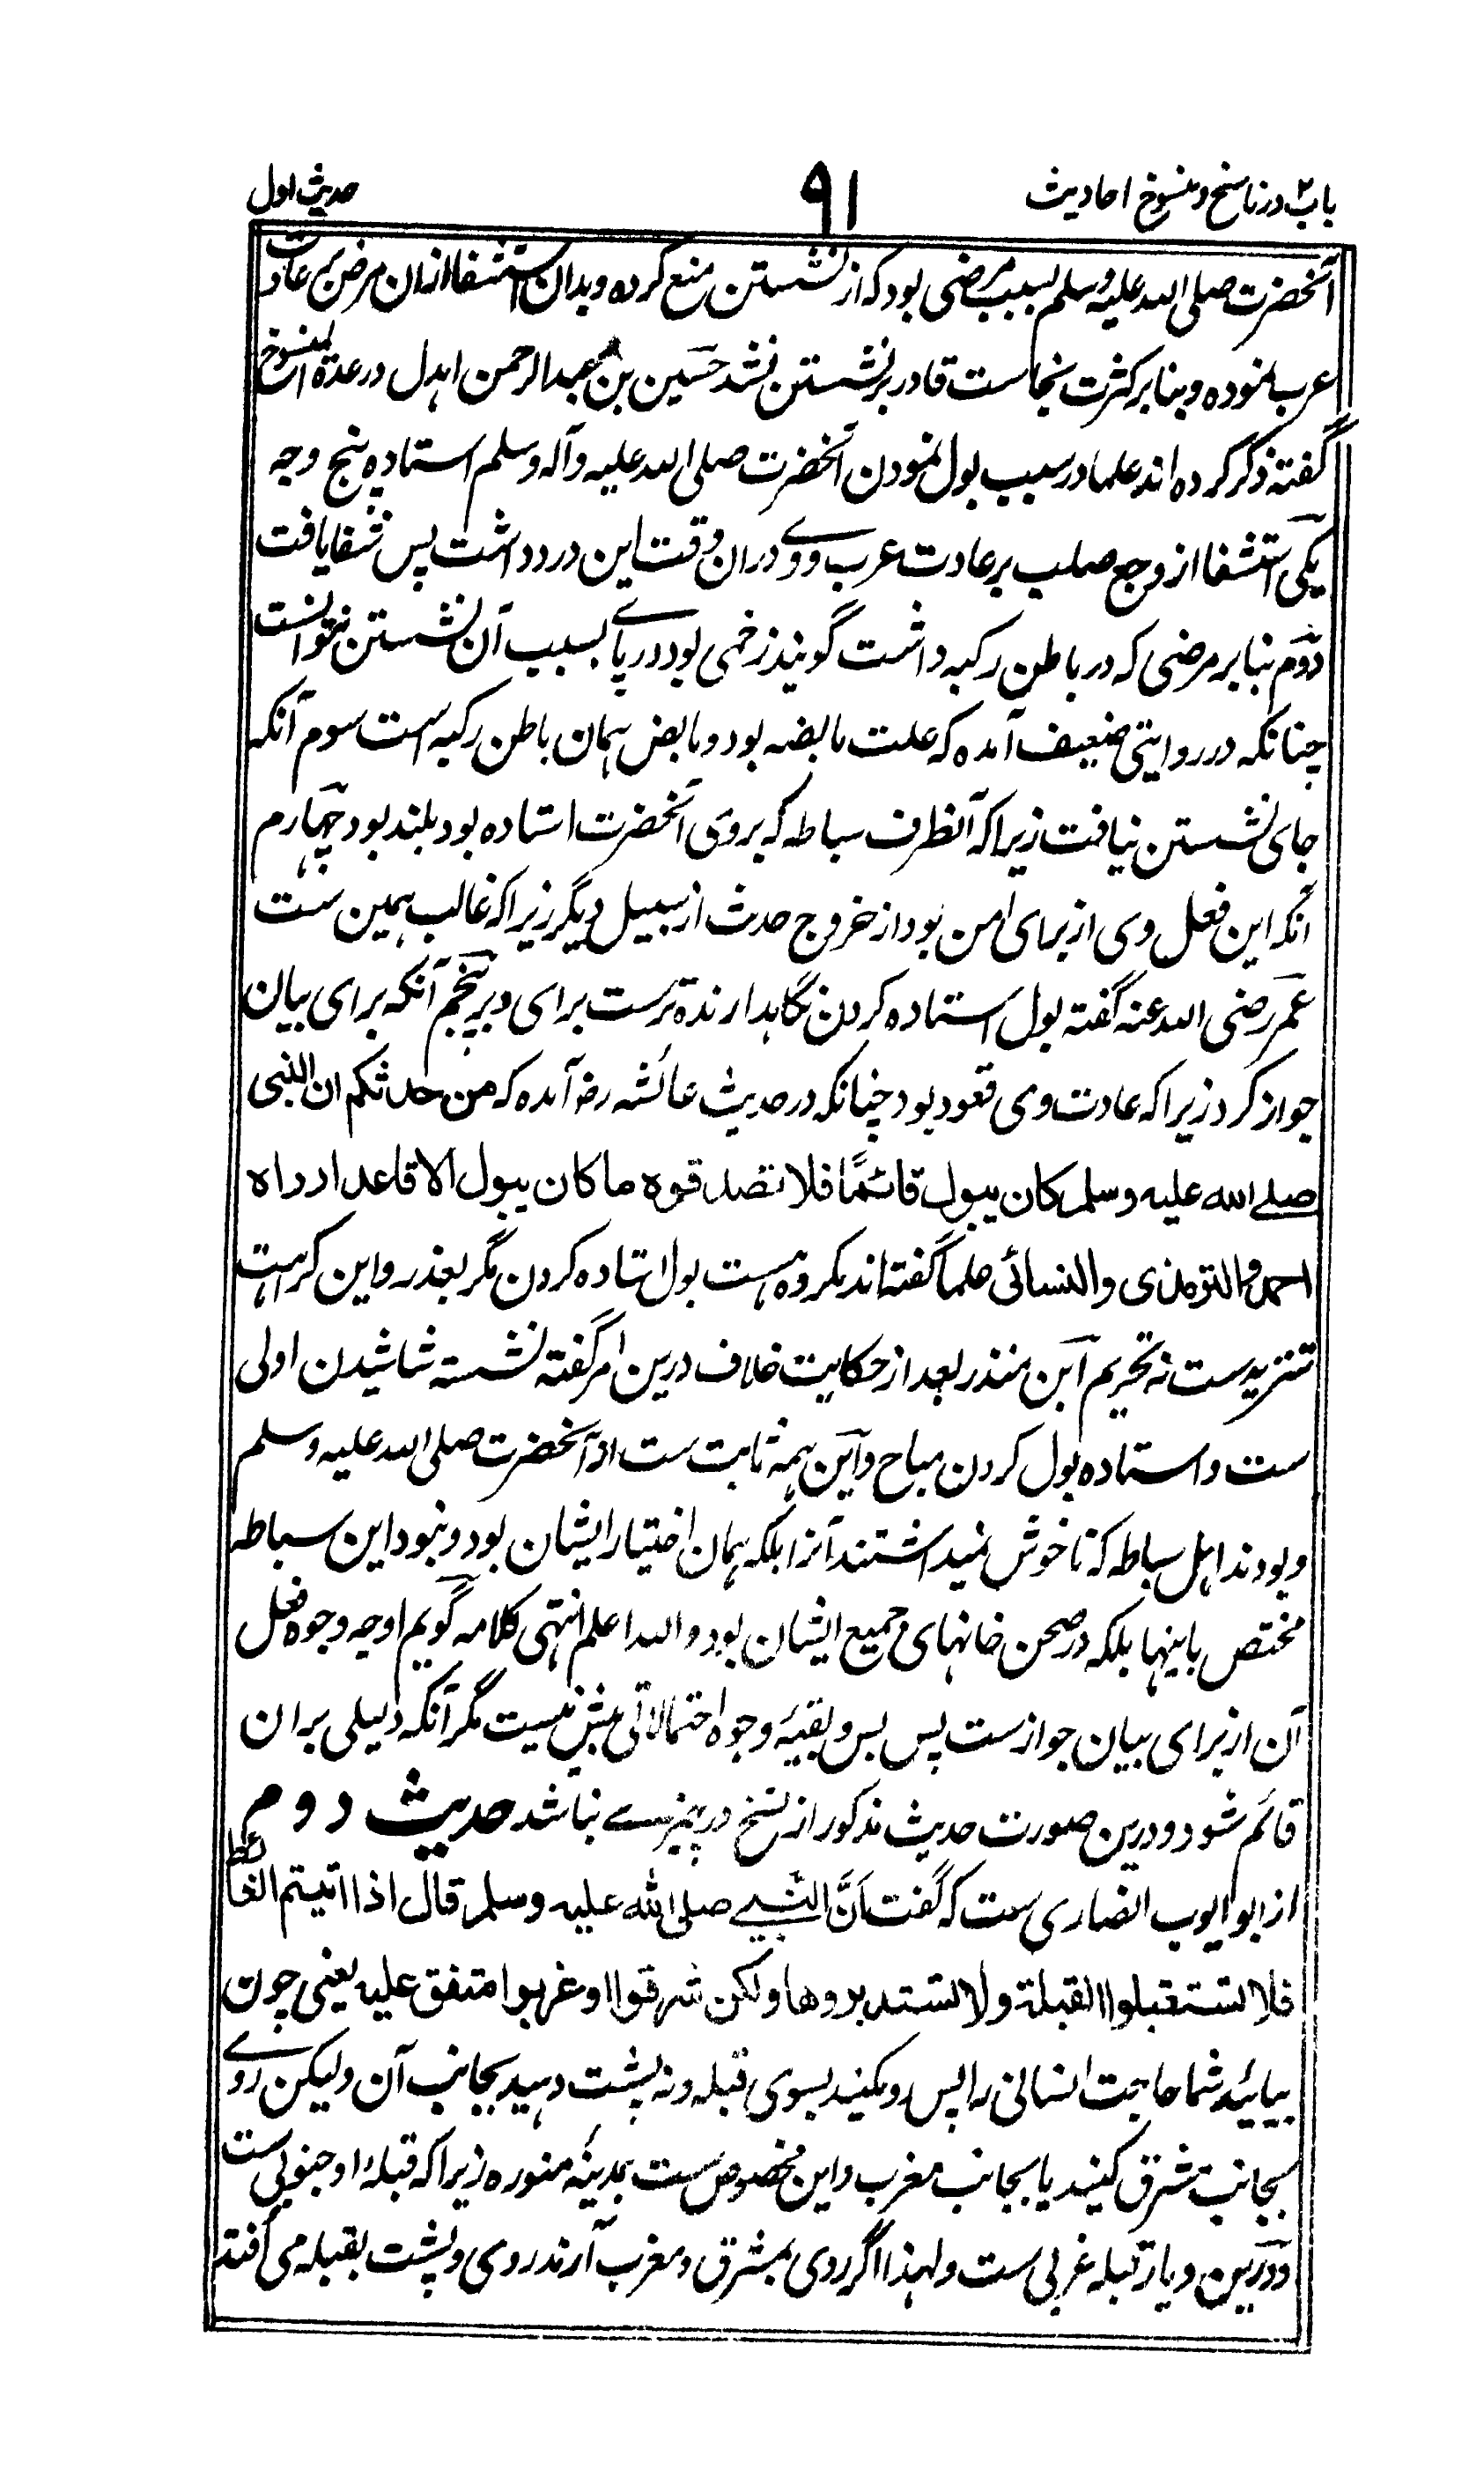 باب۲ در ناسخ و منسوخ احادیث
۹۱
حدیث اول
آنحضرت صلی الله علیه وسلم بسبب مرضی بود که از نشستن منع کرده و بدان استشفا ازان مرض بر عادت
عرب نموده و بنا بر کثرت نجاست قادر بر نشستن نشد حسین بن عبدالرحمن اهدل در عدة المنسوخ
گفته ذکر کرده اند علما در سبب بول نمودن آنحضرت صلی الله علیه وآله وسلم استاده پنج وجه
یکی استشفا از وجع صلب بر عادت عرب و وے دران وقت این درد داشت پس شفا یافت
دوم بنا بر مرضی که در باطن رکبه داشت گویند زخمی بود در پاے بسبب آن نشستن نتوانست
چنانکه در روایتی ضعیف آمده که علت مابضه بود و مابض همان باطن رکبه است سوم آنکه
جای نشستن نیافت زیرا که آنطرف سباطه که بروی آنحضرت استاده بود بلند بود چهارم
آنکه این فعل وی از برای امن بود از خروج حدث از سبیل دیگر زیرا که غالب همین ست
عمر رضی الله عنه گفته بول استاده کردن نگاهدارنده ترست برای دبر پنجم آنکه برای بیان
جواز کرد زیرا که عادت وی قعود بود چنانکه در حدیث عائشه رض آمده که من حدثکم ان النبی
صلے الله علیه وسلم کان یبول قائمًا فلا تصدقوه ما کان یبول الا قاعدا رواه
احمد والترمذی والنسائی علما گفته اند مکروه است بول استاده کردن مگر بعذر و این کراهت
تنزیه ست نه تحریم ابن منذر بعد از حکایت خلاف درین امر گفته نشسته شاشیدن اولی
ست و استاده بول کردن مباح و این همه ثابت ست از آنحضرت صلی الله علیه وسلم
و بودند اهل سباطه که ناخوش نمیداشتند آنرا بلکه همان اختیار ایشان بود و نبود این سباطه
مختص باینها بلکه در صحن خانهای جمیع ایشان بود والله اعلم انتهی کلامه گویم اوجه وجوه فعل
آن از برای بیان جوازست پس بس و بقیهٔ وجوه احتمالاتی بیش نیست مگر آنکه دلیلی بران
قائم شود و درین صورت حدیث مذکور از نسخ در چیزے نباشد حدیث دوم
از ابو ایوب انصاری ست که گفت اَنَّ النبے صلی الله علیه وسلم قال اذا اتیتم الغائط
فلا تستقبلوا القبلة ولا تستدبروها ولکن شرقوا او غربوا متفق علیه یعنی چون
بیائید شما حاجت انسانی را پس رو مکنید بسوی قبله و نه پشت دهید بجانب آن ولیکن روے
بجانب مشرق کنید یا بجانب مغرب و این مخصوص ست بمدینهٔ منوره زیرا که قبلهٔ او جنوبی است
و درین دیار قبله غربی ست ولهذا اگر روی بمشرق و مغرب آرند روی و پشت بقبله می افتد